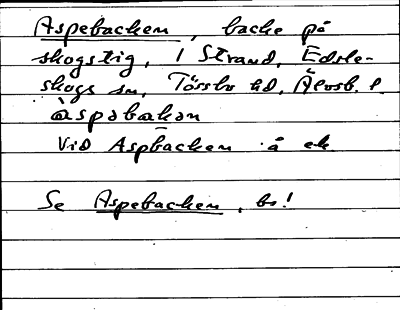 Aspebacken, backe på
skogstig, i Strand, Edsle-
skogs sn, Tössbo hd, Älvsb. l.
àspəbakən
Vid Aspbacken å ek
Se Aspebacken, bs!